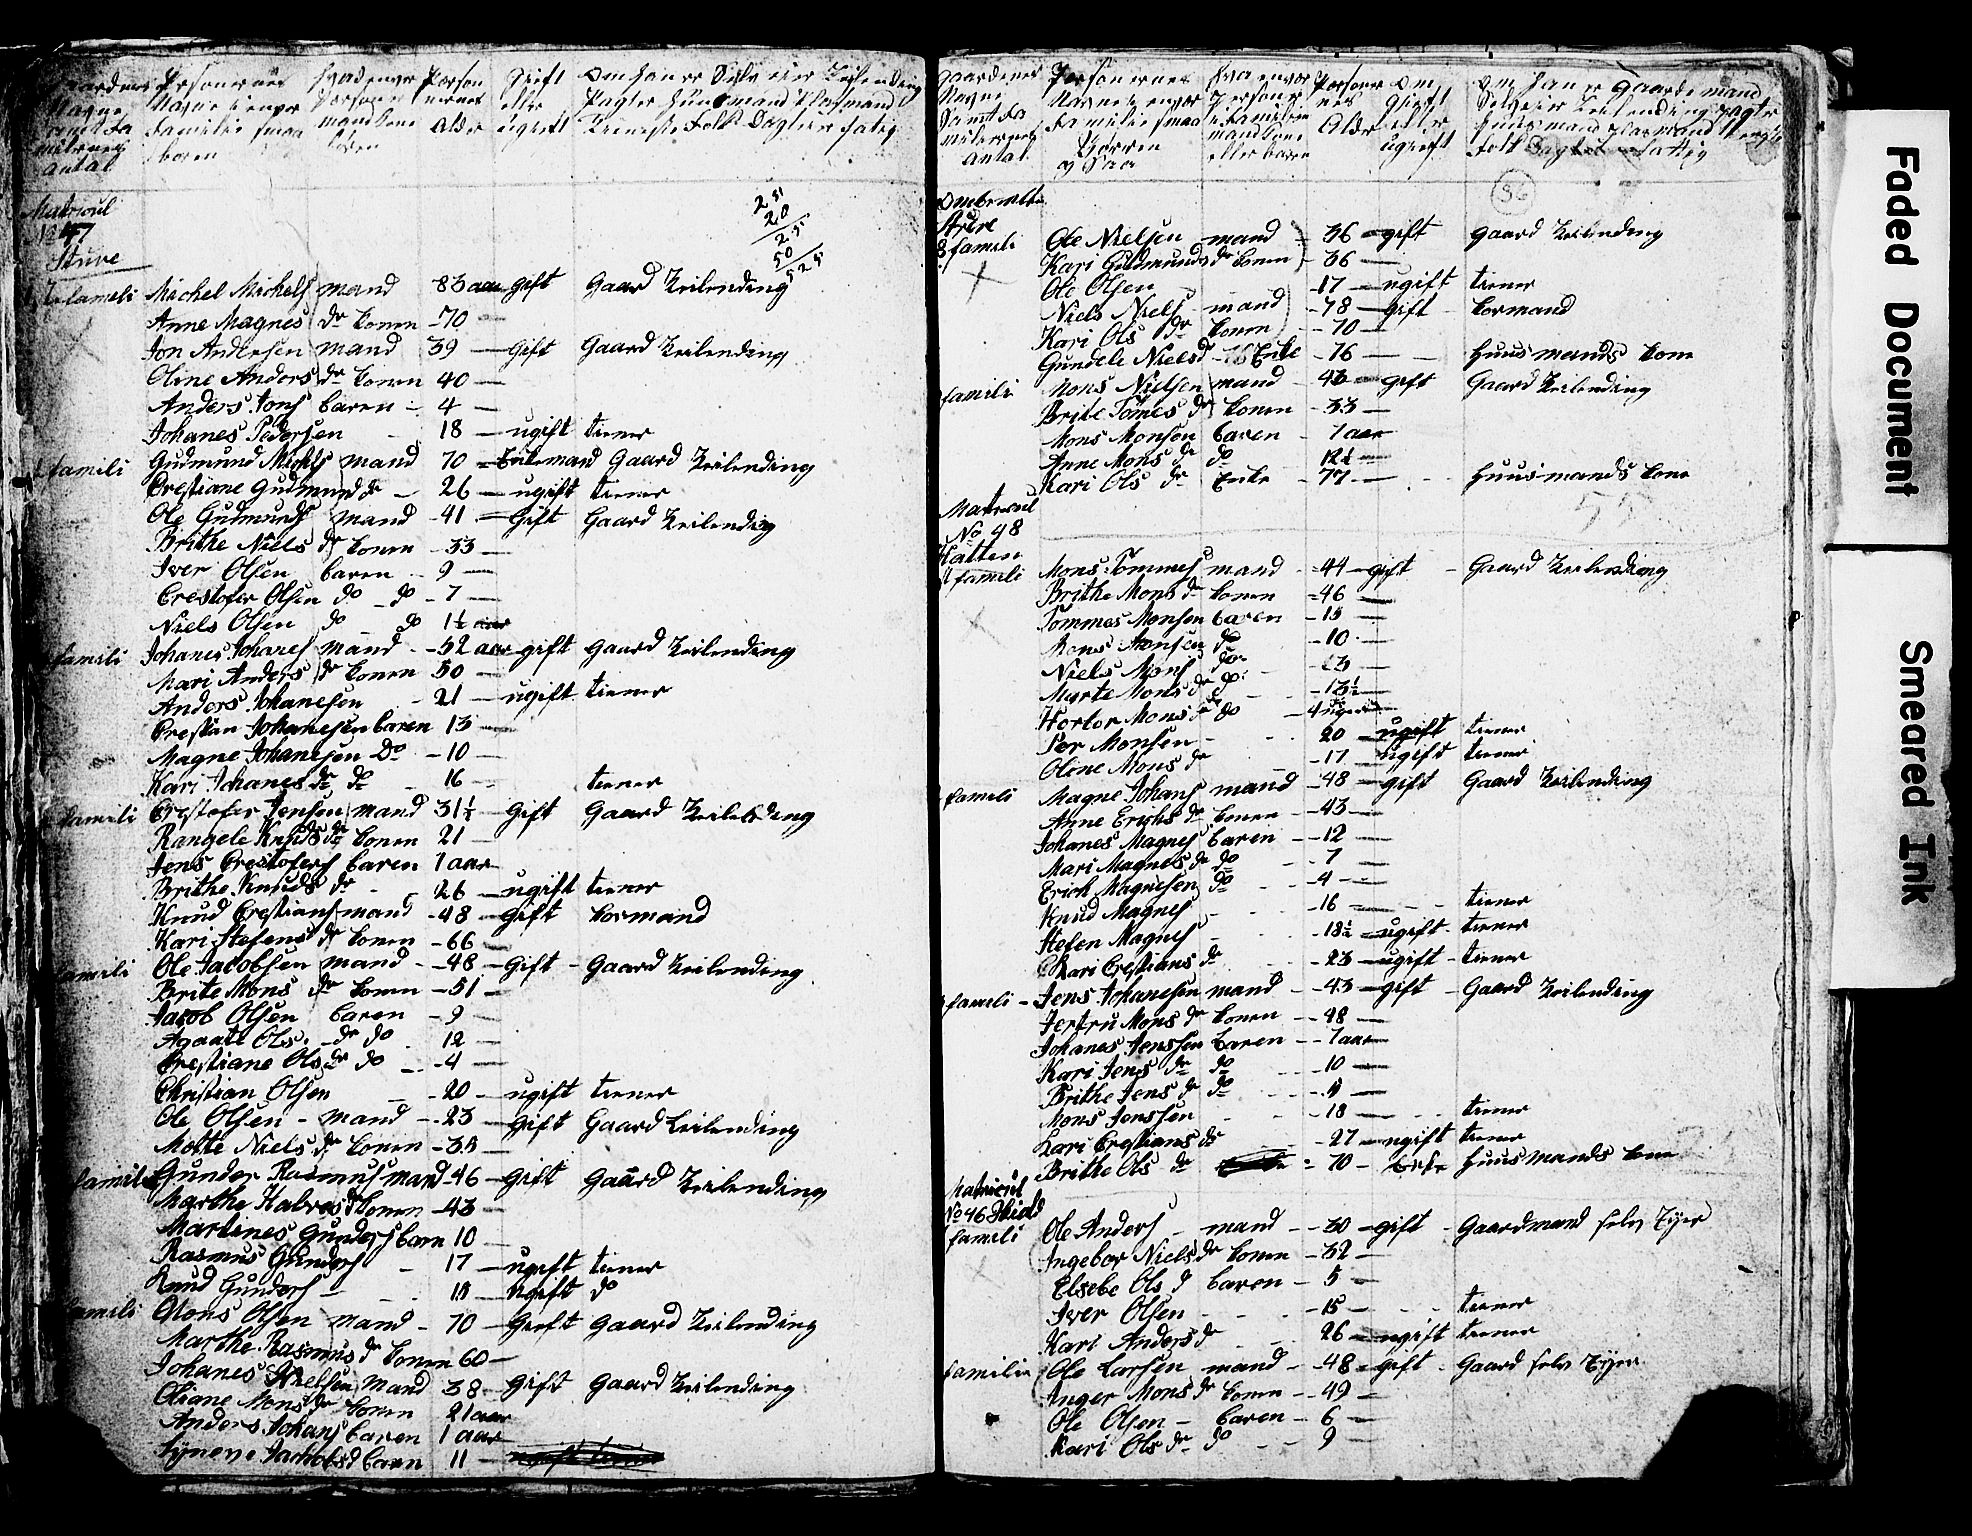 Gaardenes
Navne
samt Fa
miliernes
antal
Personernes
Navne i enver
Familie smaa
børen
hvad enver
Person
mand kone
børen
Person
ernes
Alder
Gift
eller
ugift
Om han er Selv eier Leilending
Pagter Huusmand Plasmand
Tieneste Folk Dagtier fatig
Matricul
No 47
Sture
famili Michel Michels mand 83 aar gift Gaard Leilending
Anne Magnes dr konen 70
Jon Andersen mand 39 Gift Gaard Leilending
Oline Anders dr konen 40
Anders Jons baren 4
Johanes Pedersen 18 ugift tiener
famili Gudmund Michls mand 70 Enkemand Gaard Leilending
Crestiane Gudmund dr 26 ugift tiener
Ole Gudmunds mand 41 Gift Gaard Leilending
Brithe Niels dr konen 33
Iver Olsen baren 9
Crestofer Olsen do do 7
Niels Olsen do do 1½ aar
famili Johanes Johanes mand 52 aar gift Gaard Leilending
Mari Anders dr konen 50
Anders Johanesen 21 ugift tiener
Crestian Johanesen baren 13
Magne Johanesen Do 10
Kari Johanes dr do 16 tiener
famili Crestofer Jensen mand 31½ Gift Gaard Leilending
Rangele Knuds dr konen 21
Jens Crestofers baren 1 aar
Brithe Knuds dr 26 ugift tiener
Knud Crestians mand 48 Gift kormand
Kari Stefens dr konen 66
famili Ole Jacobsen mand 48 Gift Gaard Leilending
Brite Mons dr konen 51
Jacob Olsen baren 9
Agaate Ols dr do 12
Crestiane Ols dr do 4
Christian Olsen 20 ugift tiener
Ole Olsen mand 23 Gift Gaard Leilending
Motte Niels dr konen
famili Gunder Rasmus mand 46 Gift Gaard Leilending
Marthe Halvors dr konen 43
Martenes Gunders barn 10
Rasmus Gunders 17 ugift tiener
Knud Gunders ugift do
famili Mons Olsen mand 70 Gieft Gaard Leilending
Marthe Rasmus dr konen 60
Johanes Nielsen mand 38 Gift Gaard Leilending
Oliane Mons dr konen 21 aar
Anders Johans baren 1 aar
Synneve Jachobs d barn 11
251
20
255
50
525
Gaardenes
Navne
samt Fa
miliernes
antal
Personernes
Navne i enver
Familie smaa
børren
og Saa
hva enver
Person
i Familien
mand kone
eller baren
Personer
nes
Alder
Om
Gieft
eller
ugieft
Om Han er Gaardemand
Selveier Leilending Pagter
Huusmand Plasmand
Folk Dagtier fattig
36
Ombemelte
Sture
8 famili Ole Nielsen mand 36 gift Gaard Leilending
Kari Gudmunds dr konen 36
Ole Olsen 17 ugift tiener
Niels Niels mand 78 gift kormand
Kari Ols dr konen 70
Gundele Niels d Enke 76 Huusmands kone
famili Mons Nielsen mand 43 gift Gaard Leilending
Brite Tomes dr konen 33
Mons Monsen baren 7 aar
Anne Mons dr do 12½
Kari Ols dr Enke 77 Huusmands kone
Matricul
No 48
Hatten
famili Mons Tommes mand 44 gift Gaard Leilending
Brithe Mons dr konen 46
Tommes Monsen baren 15
Mons Monsen do 10
Niels Mons do
Marte Mons dr do 13½
Hortor Mons dr do 4 uger
Per Monsen 20 ugift tiener
Oline Mons dr 17 ugift tiener
famili Magne Johans mand 48 gift Gaard Leilending
Anne Erichs dr konen 43
Johanes Magnes baren 12
Mari Magnes dr do 7
Erich Magnesen do 4
Knud Magnes 16 tiener
Stefen Magnes 18½ ugift tiener
Kari Crestians dr 23 ugift tiener
famili Jens Johanesen mand 43 gift Gaard Leilending
Jertru Mons dr konen 48
Johanes Jenssen baren 7 aar
Kari Jens dr do 10
Brithe Jens dr do
Mons Jenssen 18 tiener
Kari Crestians dr 27 ugift tiener
Brithe Ols dr 70 Enke Huusmands kone
Matricul
No 46
famili Ole Anders mand 30 gift Gaardmand selv Eyer
Ingebor Niels dr konen 32
Elsebe Ols d baren 5
Iver Olsen 15 tiener
Kari Anders dr 26 ugift tiener
familie Ole Larsen mand 48 gift Gaard selv Eyer
Inger Mons dr konen 49
Ole Olsen baren 6
Kari Ols dr do 9
Faded Document
Smeared Ink